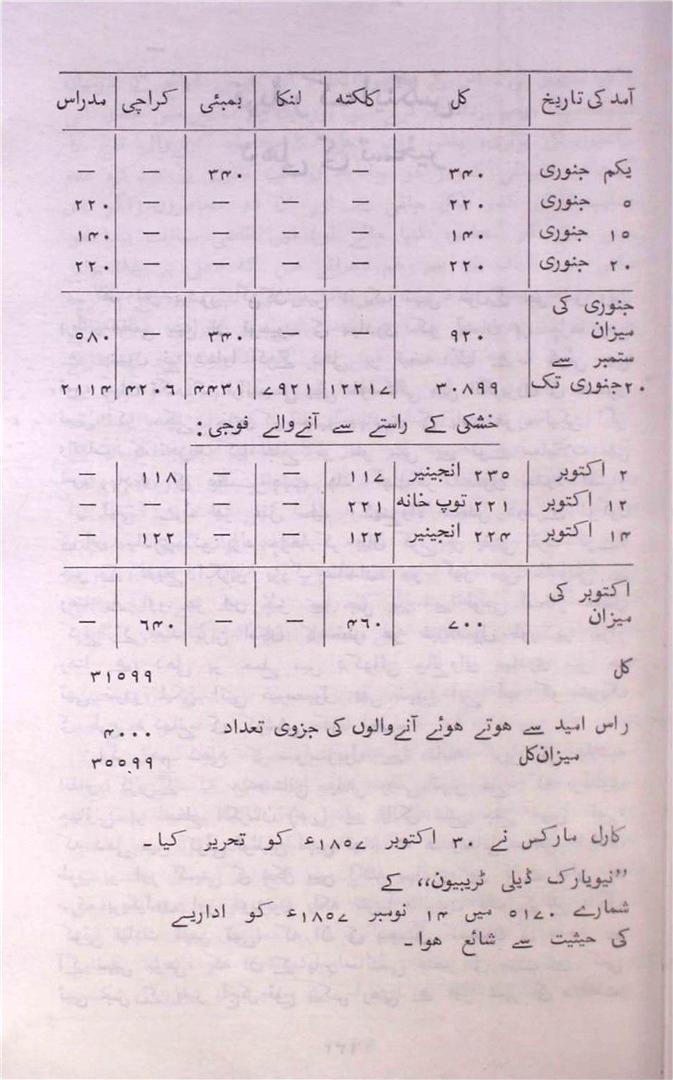 آمد کی تاریخ | کل | کلکتہ | لنکا | بمبئی | کراچی | مدراس
یکم جنوری | ۳۴۰ | — | — | ۳۴۰ | — | —
۵ جنوری | ۲۲۰ | — | — | — | — | ۲۲۰
۱۵ جنوری | ۱۴۰ | — | — | — | — | ۱۴۰
۲۰ جنوری | ۲۲۰ | — | — | — | — | ۲۲۰
جنوری کی
میزان | ۹۲۰ | — | — | ۳۴۰ | — | ۵۸۰
ستمبر سے
۲۰ جنوری تک | ۳۰۸۹۹ | ۱۲۲۱۷ | ۷۹۲۱ | ۴۴۳۱ | ۴۲۰۶ | ۲۱۱۴
خشکی کے راستے سے آنے والے فوجی:
۲ اکتوبر | ۲۳۵ انجنیر | ۱۱۷ | — | — | ۱۱۸ | —
۱۲ اکتوبر | ۲۲۱ توپ خانہ | ۲۲۱ | — | — | — | —
۱۴ اکتوبر | ۲۲۴ انجنیر | ۱۲۲ | — | — | ۱۲۲ | —
اکتوبر کی
میزان | ۷۰۰ | ۴۶۰ | — | — | ۶۴۰ | —
کل ۳۱۵۹۹
راس امید سے ہوتے ہوئے آنے والوں کی جزوی تعداد ۴۰۰۰
میزان کل ۳۵۵۹۹
کارل مارکس نے ۳۰ اکتوبر ۱۸۵۷ء کو تحریر کیا۔
”نیویارک ڈیلی ٹریبیون،، کے
شمارے ۵۱۷۰ میں ۱۴ نومبر ۱۸۵۷ء کو اداریے
کی حیثیت سے شائع ہوا۔